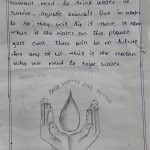 human need to drink water to
survive, aquatic animals live in water
so they will die if there is no
water, is the water on this planet
get over. There will be no future
for any of us. This is the reason
why we need to save water.
SAVE WATER